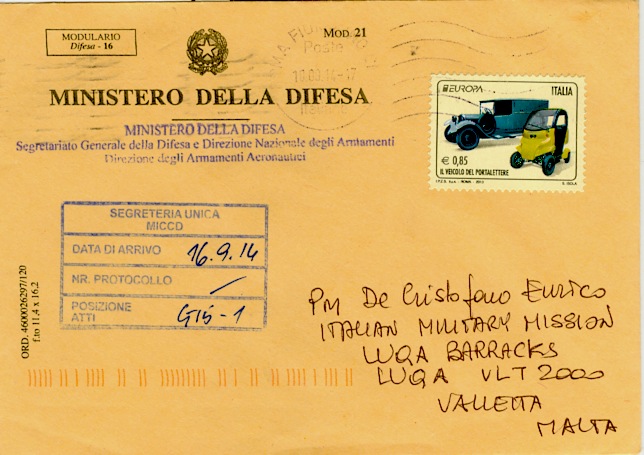 MODULARIO
Difesa - 16
MOD. 21
MINISTERO DELLA DIFESA
MINISTERO DELLA DIFESA
Segretariato Generale della Difesa e Direzione Nazionale degli Armamenti
Direzione degli Armamenti Aeronautici
Poste
EUROPA
ITALIA
€ 0,85
IL VEICOLO DEL PORTALETTERE
I.P.Z.S. S.p.A. - ROMA - 2013
SEGRETERIA UNICA
MICCD
DATA DI ARRIVO 16.9.14
NR. PROTOCOLLO
POSIZIONE
ATTI G15-1
ORD. 4600026297/120
f.to 11,4 x 16,2
PM De Cristofano Enrico
ITALIAN MILITARY MISSION
LUQA BARRACKS
LUQA VLT 2000
VALLETTA
MALTA